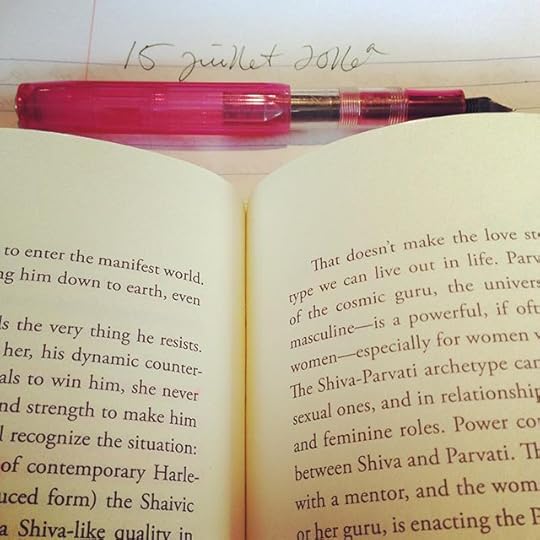 15 juillet 2016
to enter the manifest world.
ng him down to earth, even
ls the very thing he resists.
her, his dynamic counter-
als to win him, she never
nd strength to make him
l recognize the situation:
of contemporary Harle-
uced form) the Shaivic
a Shiva-like quality in
That doesn't make the love st
type we can live out in life. Parv
of the cosmic guru, the univers
masculine—is a powerful, if oft
women—especially for women w
The Shiva-Parvati archetype can
sexual ones, and in relationship
and feminine roles. Power cou
between Shiva and Parvati. Th
with a mentor, and the wom
or her guru, is enacting the P